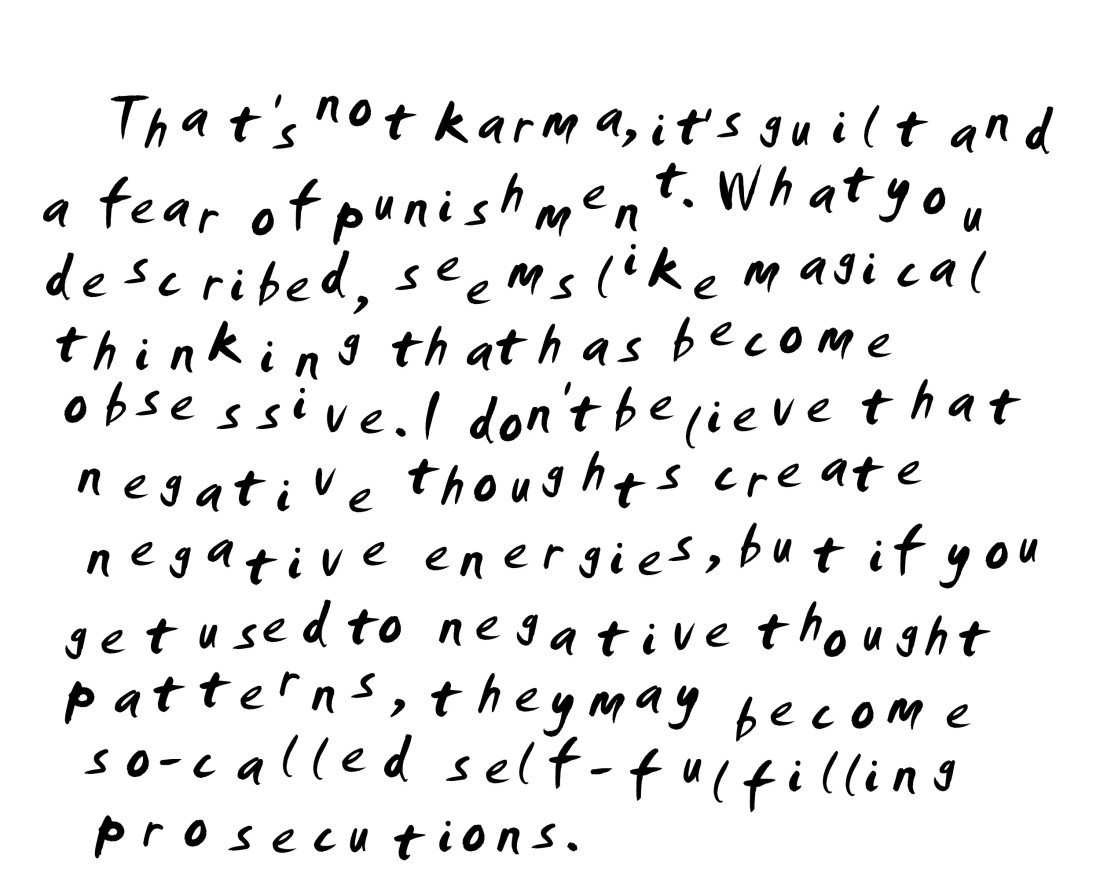 That's not karma, it's guilt and
a fear of punishment. What you
described, seems like magical
thinking that has become
obsessive. I don't believe that
negative thoughts create
negative energies, but if you
get used to negative thought
patterns, they may become
so-called self-fulfilling
prosecutions.